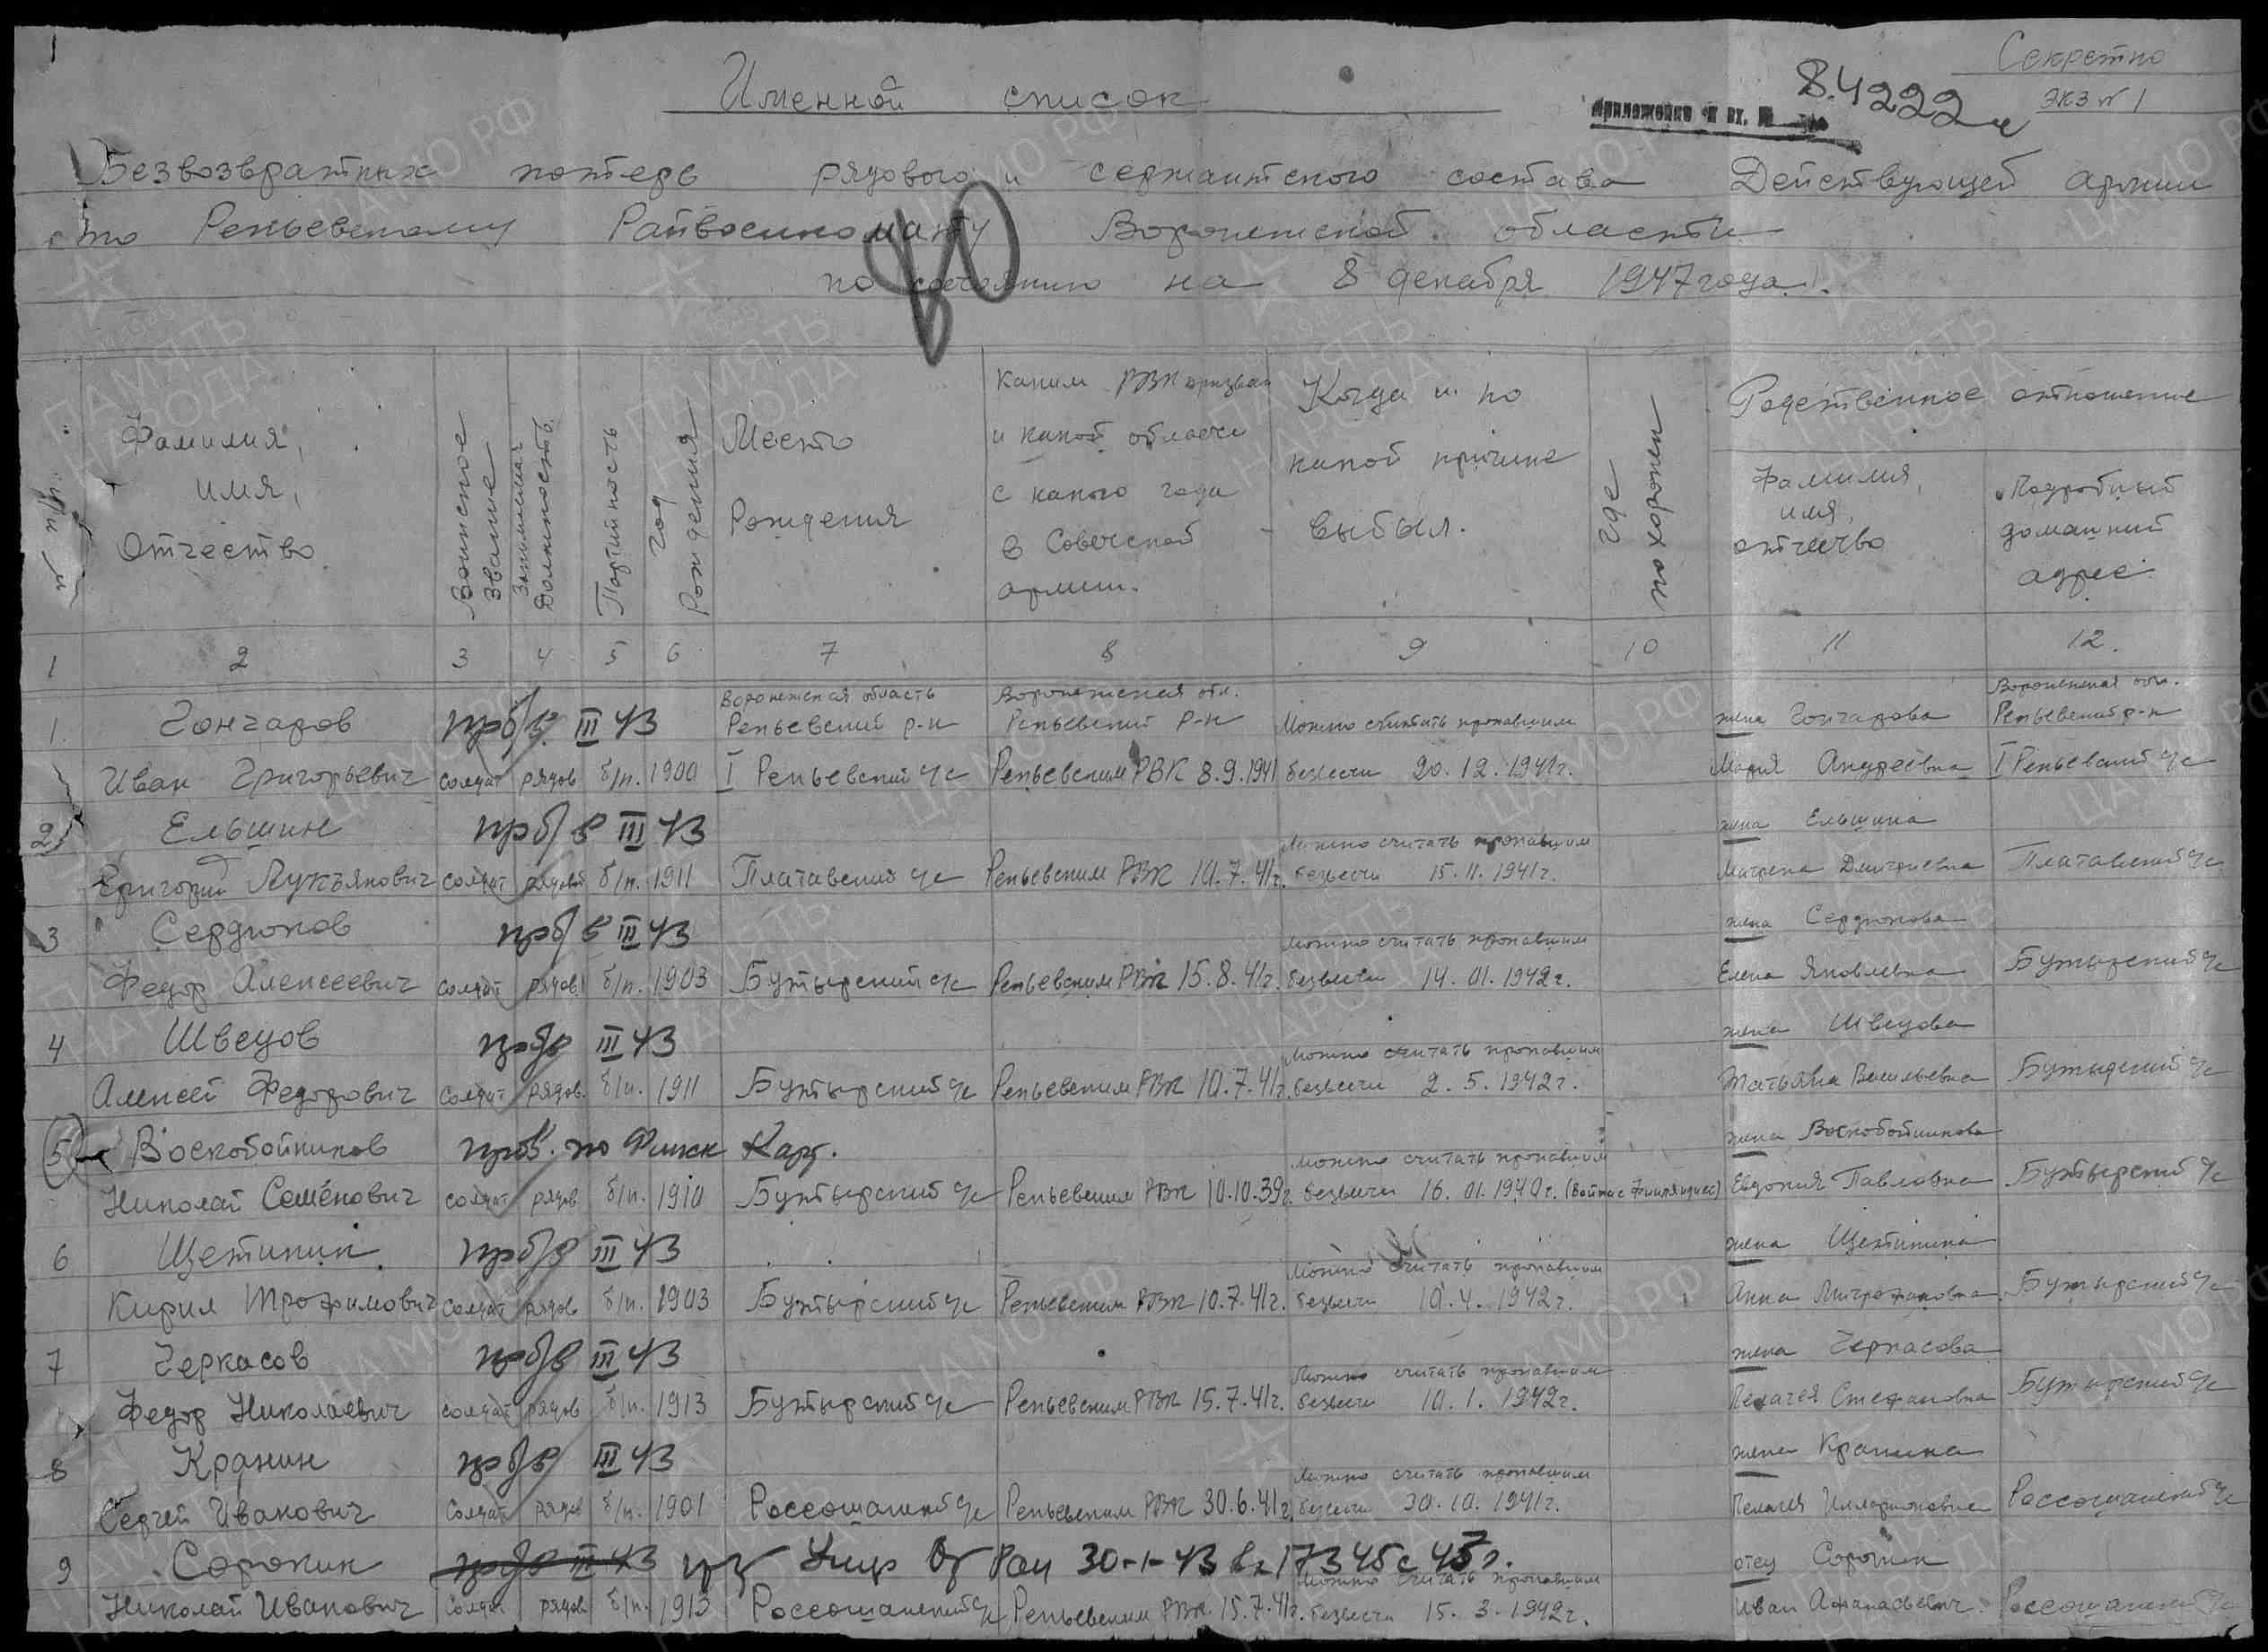 1
Секретно
Именной список
экз № 1
Приложение к вх. №
84222
Безвозвратных потерь рядового и сержантского состава Действующей армии
по Репьевскому Райвоенкомату Воронежской области
80
по состоянию на 8 декабря 1947 года.
№ п/п.
Фамилия, имя, Отчество
Воинское звание
Занимаемая должность
Партийность
год рождения
Место Рождения
Каким РВК призван и какой области с какого года в Советской армии.
Когда и по какой причине выбыл.
где похоронен
Родственное отношение
Фамилия, имя, отчество
Подробный домашний адрес
1 2 3 4 5 6 7 8 9 10 11 12.
Воронежская область Воронежская обл. Воронежская обл.
1. Гончаров прб/в. III 43 Репьевский р-н Репьевский р-н Можно считать пропавшим жена Гончарова Репьевский р-н
Иван Григорьевич солдат рядов б/п. 1900 I Репьевский с/с Репьевским РВК 8.9.1941 безвести 20.12.1941г. Мария Андреевна I Репьевский с/с
2 Ельшин прб/в III 43 Можно считать пропавшим жена Ельшина
Григорий Лукъянович солдат рядов б/п. 1911 Платавский с/с Репьевским РВК 10.7.41г. безвести 15.11.1941г. Матрена Дмитриевна Платавский с/с
3 Сердюков прб/в III 43 Можно считать пропавшим жена Сердюкова
Федор Алексеевич солдат рядов. б/п. 1903 Бутырский с/с Репьевским РВК 15.8.41г. безвести 14.01.1942г. Елена Яковлевна Бутырский с/с
4 Швецов прб/в III 43 Можно считать пропавшим жена Швецова
Алексей Федорович солдат рядов. б/п. 1911 Бутырский с/с Репьевским РВК 10.7.41г. безвести 2.5.1942г. Татьяна Васильевна Бутырский с/с
5 Воскобойников пров. по Финск Карт. Можно считать пропавшим жена Воскобойникова
Николай Семёнович солдат рядов б/п. 1910 Бутырский с/с Репьевским РВК 10.10.39г. безвести 16.01.1940г. (Война с Финляндией) Евдокия Павловна Бутырский с/с
6 Щетинин прб/в III 43 Можно считать пропавшим жена Щетинина
Кирил Трофимович солдат рядов б/п. 1903 Бутырский с/с Репьевским РВК 10.7.41г. безвести 10.4.1942г. Анна Митрофановна Бутырский с/с
7 Черкасов прб/в III 43 Можно считать пропавшим жена Черкасова
Федор Николаевич солдат рядов б/п. 1913 Бутырский с/с Репьевским РВК 15.7.41г. безвести 10.1.1942г. Пелагея Стефановна Бутырский с/с
8 Кранин прб/в III 43 Можно считать пропавшим жена Кранина
Сергей Иванович солдат рядов б/п. 1901 Россошанский с/с Репьевским РВК 30.6.41г. безвести 20.10.1941г. Пелагея Илларионовна Россошанский с/с
9 Сорокин прб/в III 43 Умер От Ран 30-1-43 вх 17345с 45г. Можно считать пропавшим отец Сорокин
Николай Иванович солдат рядов б/п. 1913 Россошанский с/с Репьевским РВК 15.7.41г. безвести 15.3.1942г. Иван Афанасьевич Россошанский с/с
ПАМЯТЬ НАРОДА
ЦАМО.РФ